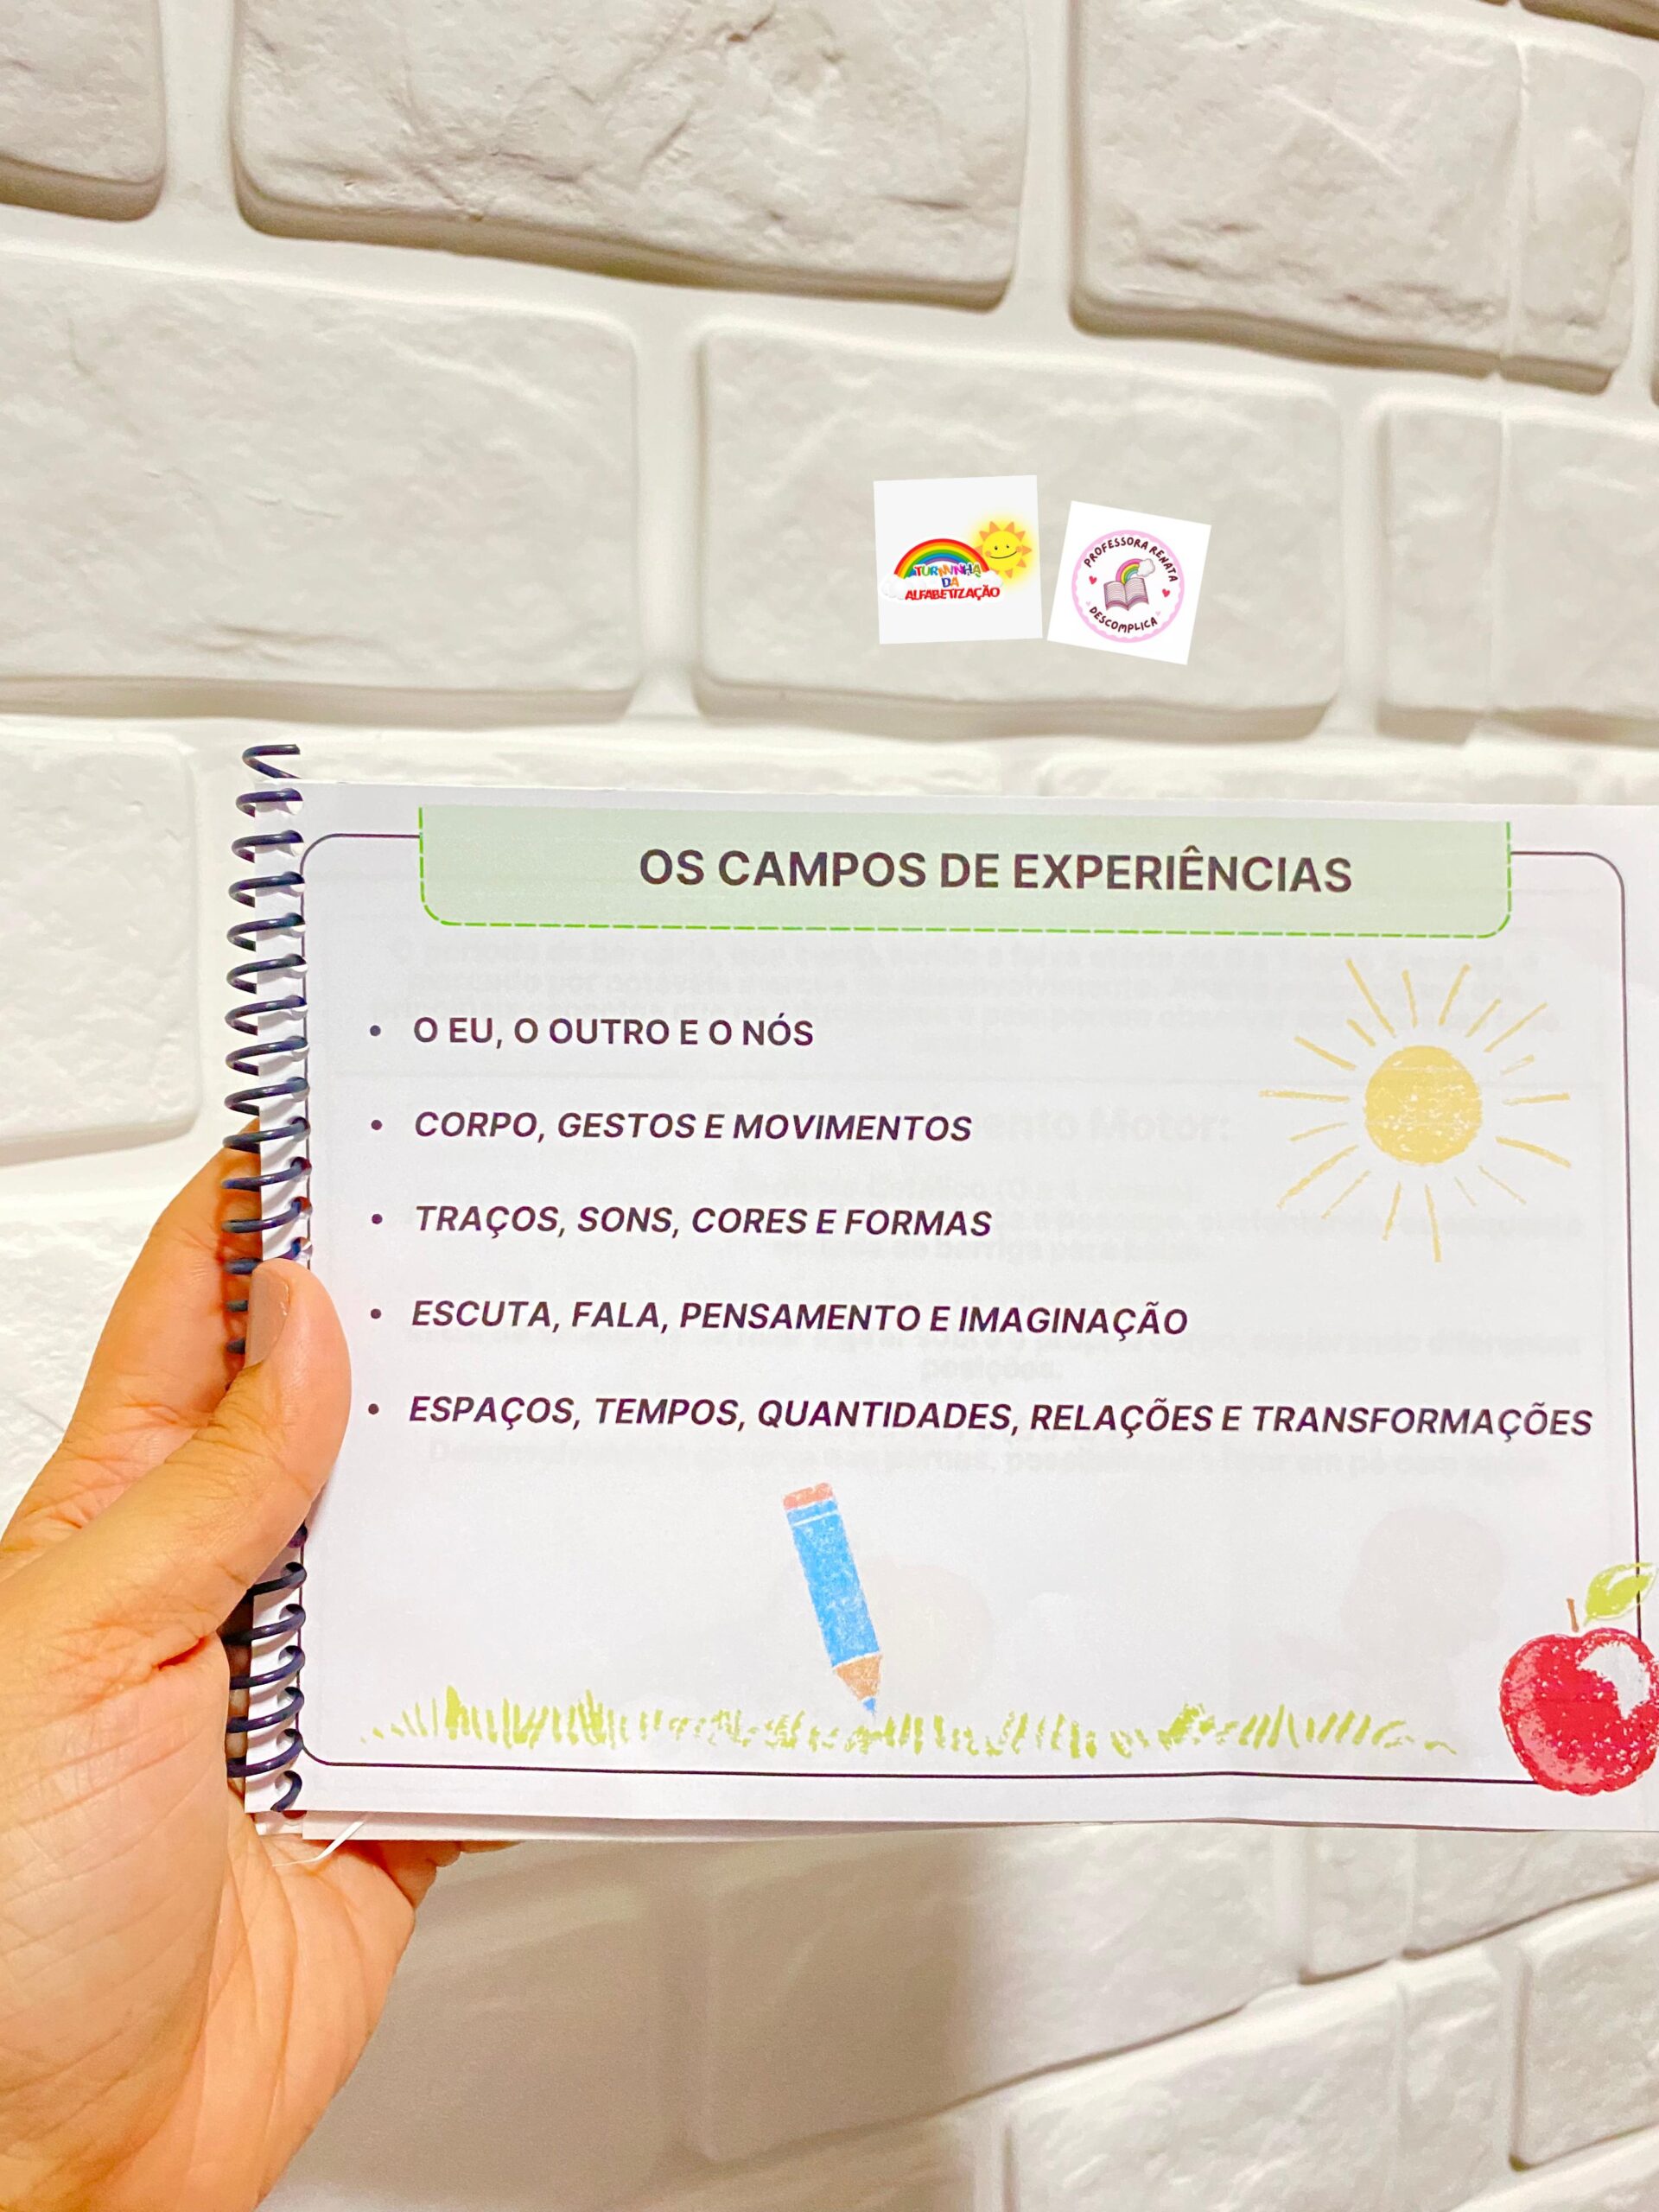 TURMINHA
DA
ALFABETIZAÇÃO
PROFESSORA RENATA
DESCOMPLICA
OS CAMPOS DE EXPERIÊNCIAS
• O EU, O OUTRO E O NÓS
• CORPO, GESTOS E MOVIMENTOS
• TRAÇOS, SONS, CORES E FORMAS
• ESCUTA, FALA, PENSAMENTO E IMAGINAÇÃO
• ESPAÇOS, TEMPOS, QUANTIDADES, RELAÇÕES E TRANSFORMAÇÕES